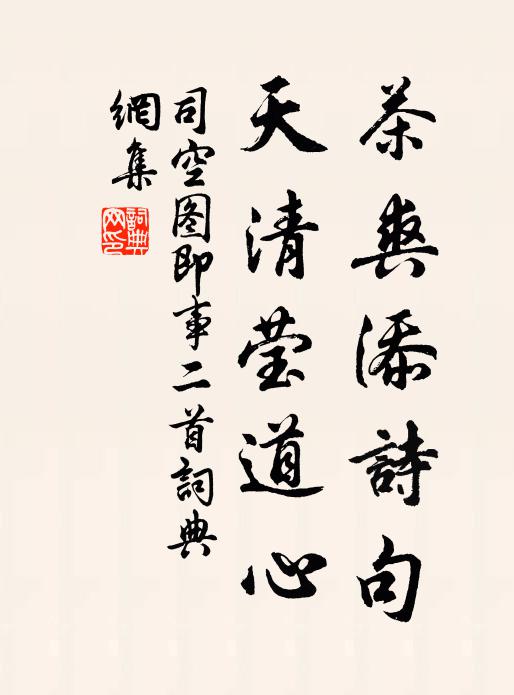 茶爽添詩句
天清莹道心
司空图即事二首詞典
網集
詞典网印